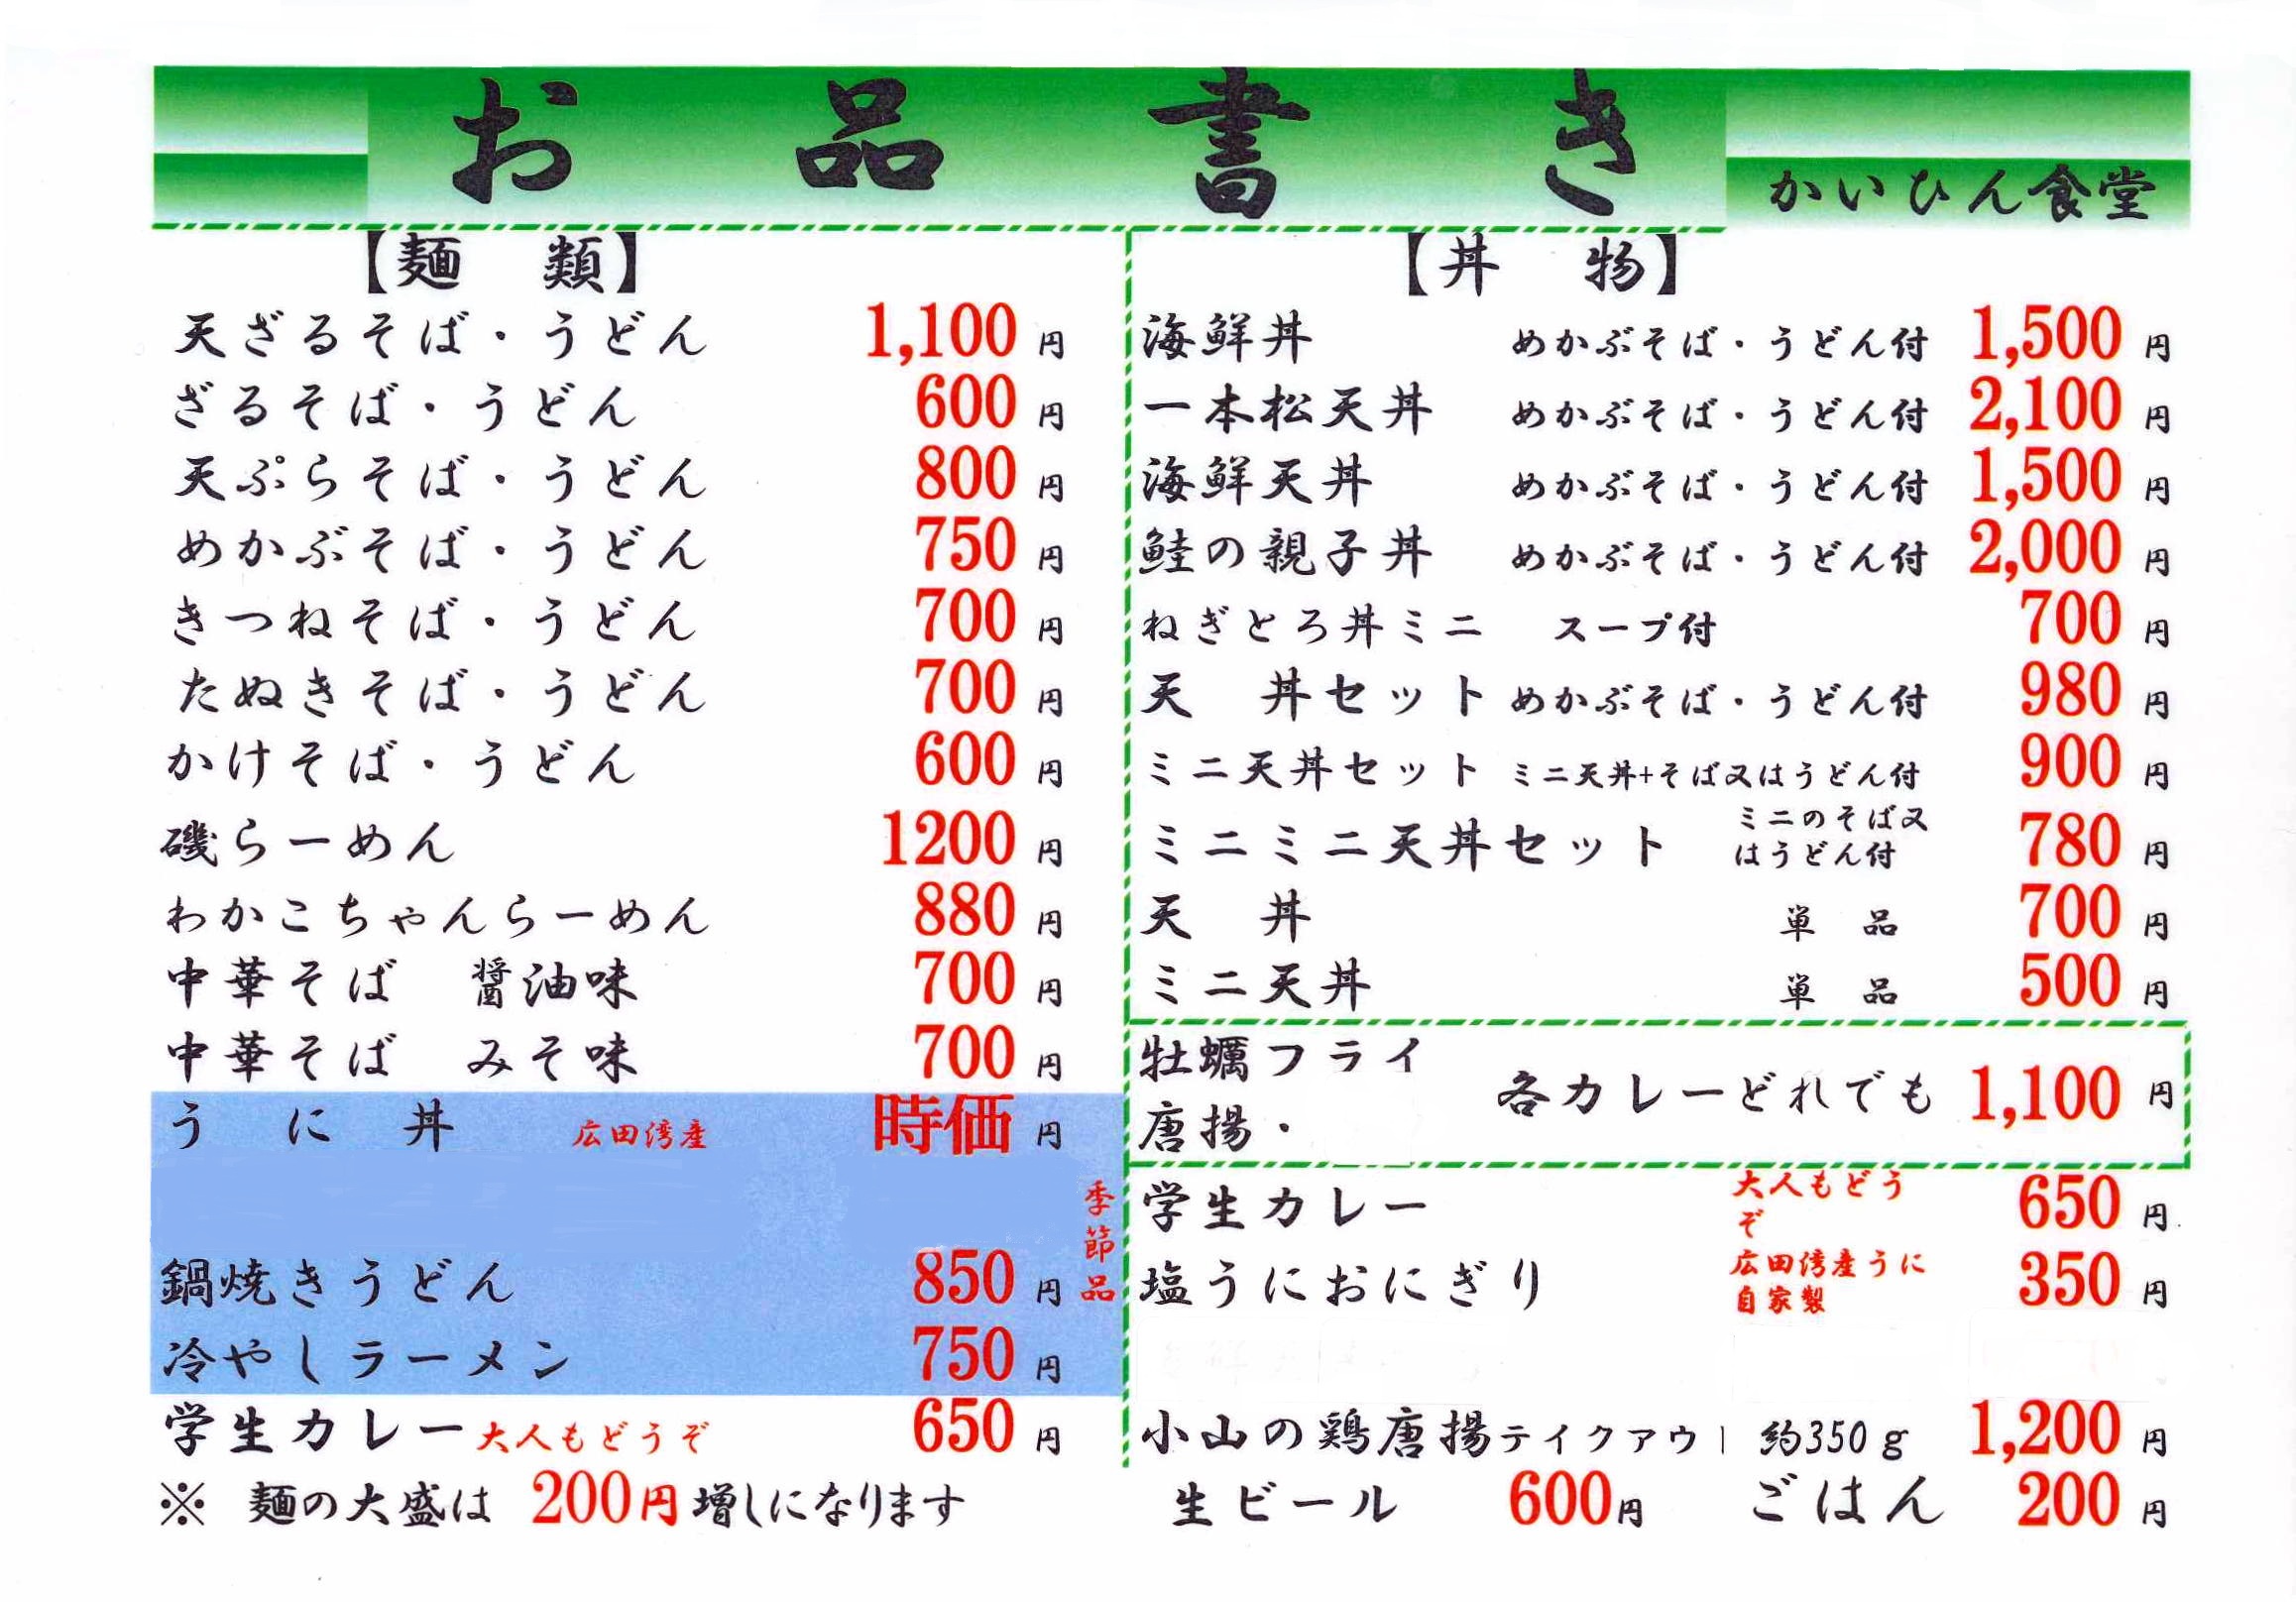 お品書き
かいひん食堂
【麺 類】
天ざるそば・うどん 1,100円
ざるそば・うどん 600円
天ぷらそば・うどん 800円
めかぶそば・うどん 750円
きつねそば・うどん 700円
たぬきそば・うどん 700円
かけそば・うどん 600円
磯らーめん 1200円
わかこちゃんらーめん 880円
中華そば 醤油味 700円
中華そば みそ味 700円
うに丼 広田湾産 時価円
季節品
鍋焼きうどん 850円
冷やしラーメン 750円
学生カレー 大人もどうぞ 650円
※ 麺の大盛は 200円増しになります
【丼 物】
海鮮丼 めかぶそば・うどん付 1,500円
一本松天丼 めかぶそば・うどん付 2,100円
海鮮天丼 めかぶそば・うどん付 1,500円
鮭の親子丼 めかぶそば・うどん付 2,000円
ねぎとろ丼ミニ スープ付 700円
天 丼セット めかぶそば・うどん付 980円
ミニ天丼セット ミニ天丼+そば又はうどん付 900円
ミニミニ天丼セット ミニのそば又
はうどん付 780円
天 丼 単 品 700円
ミニ天丼 単 品 500円
牡蠣フライ
唐揚・
各カレーどれでも 1,100円
学生カレー 大人もどう
ぞ 650円
塩うにおにぎり 広田湾産うに
自家製 350円
小山の鶏唐揚テイクアウト 約350g 1,200円
生ビール 600円 ごはん 200円